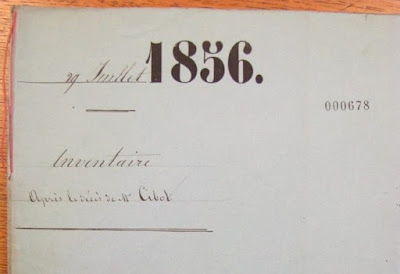 29 Juillet 1856.
000678
Inventaire
Après le décès de Mr Cibot